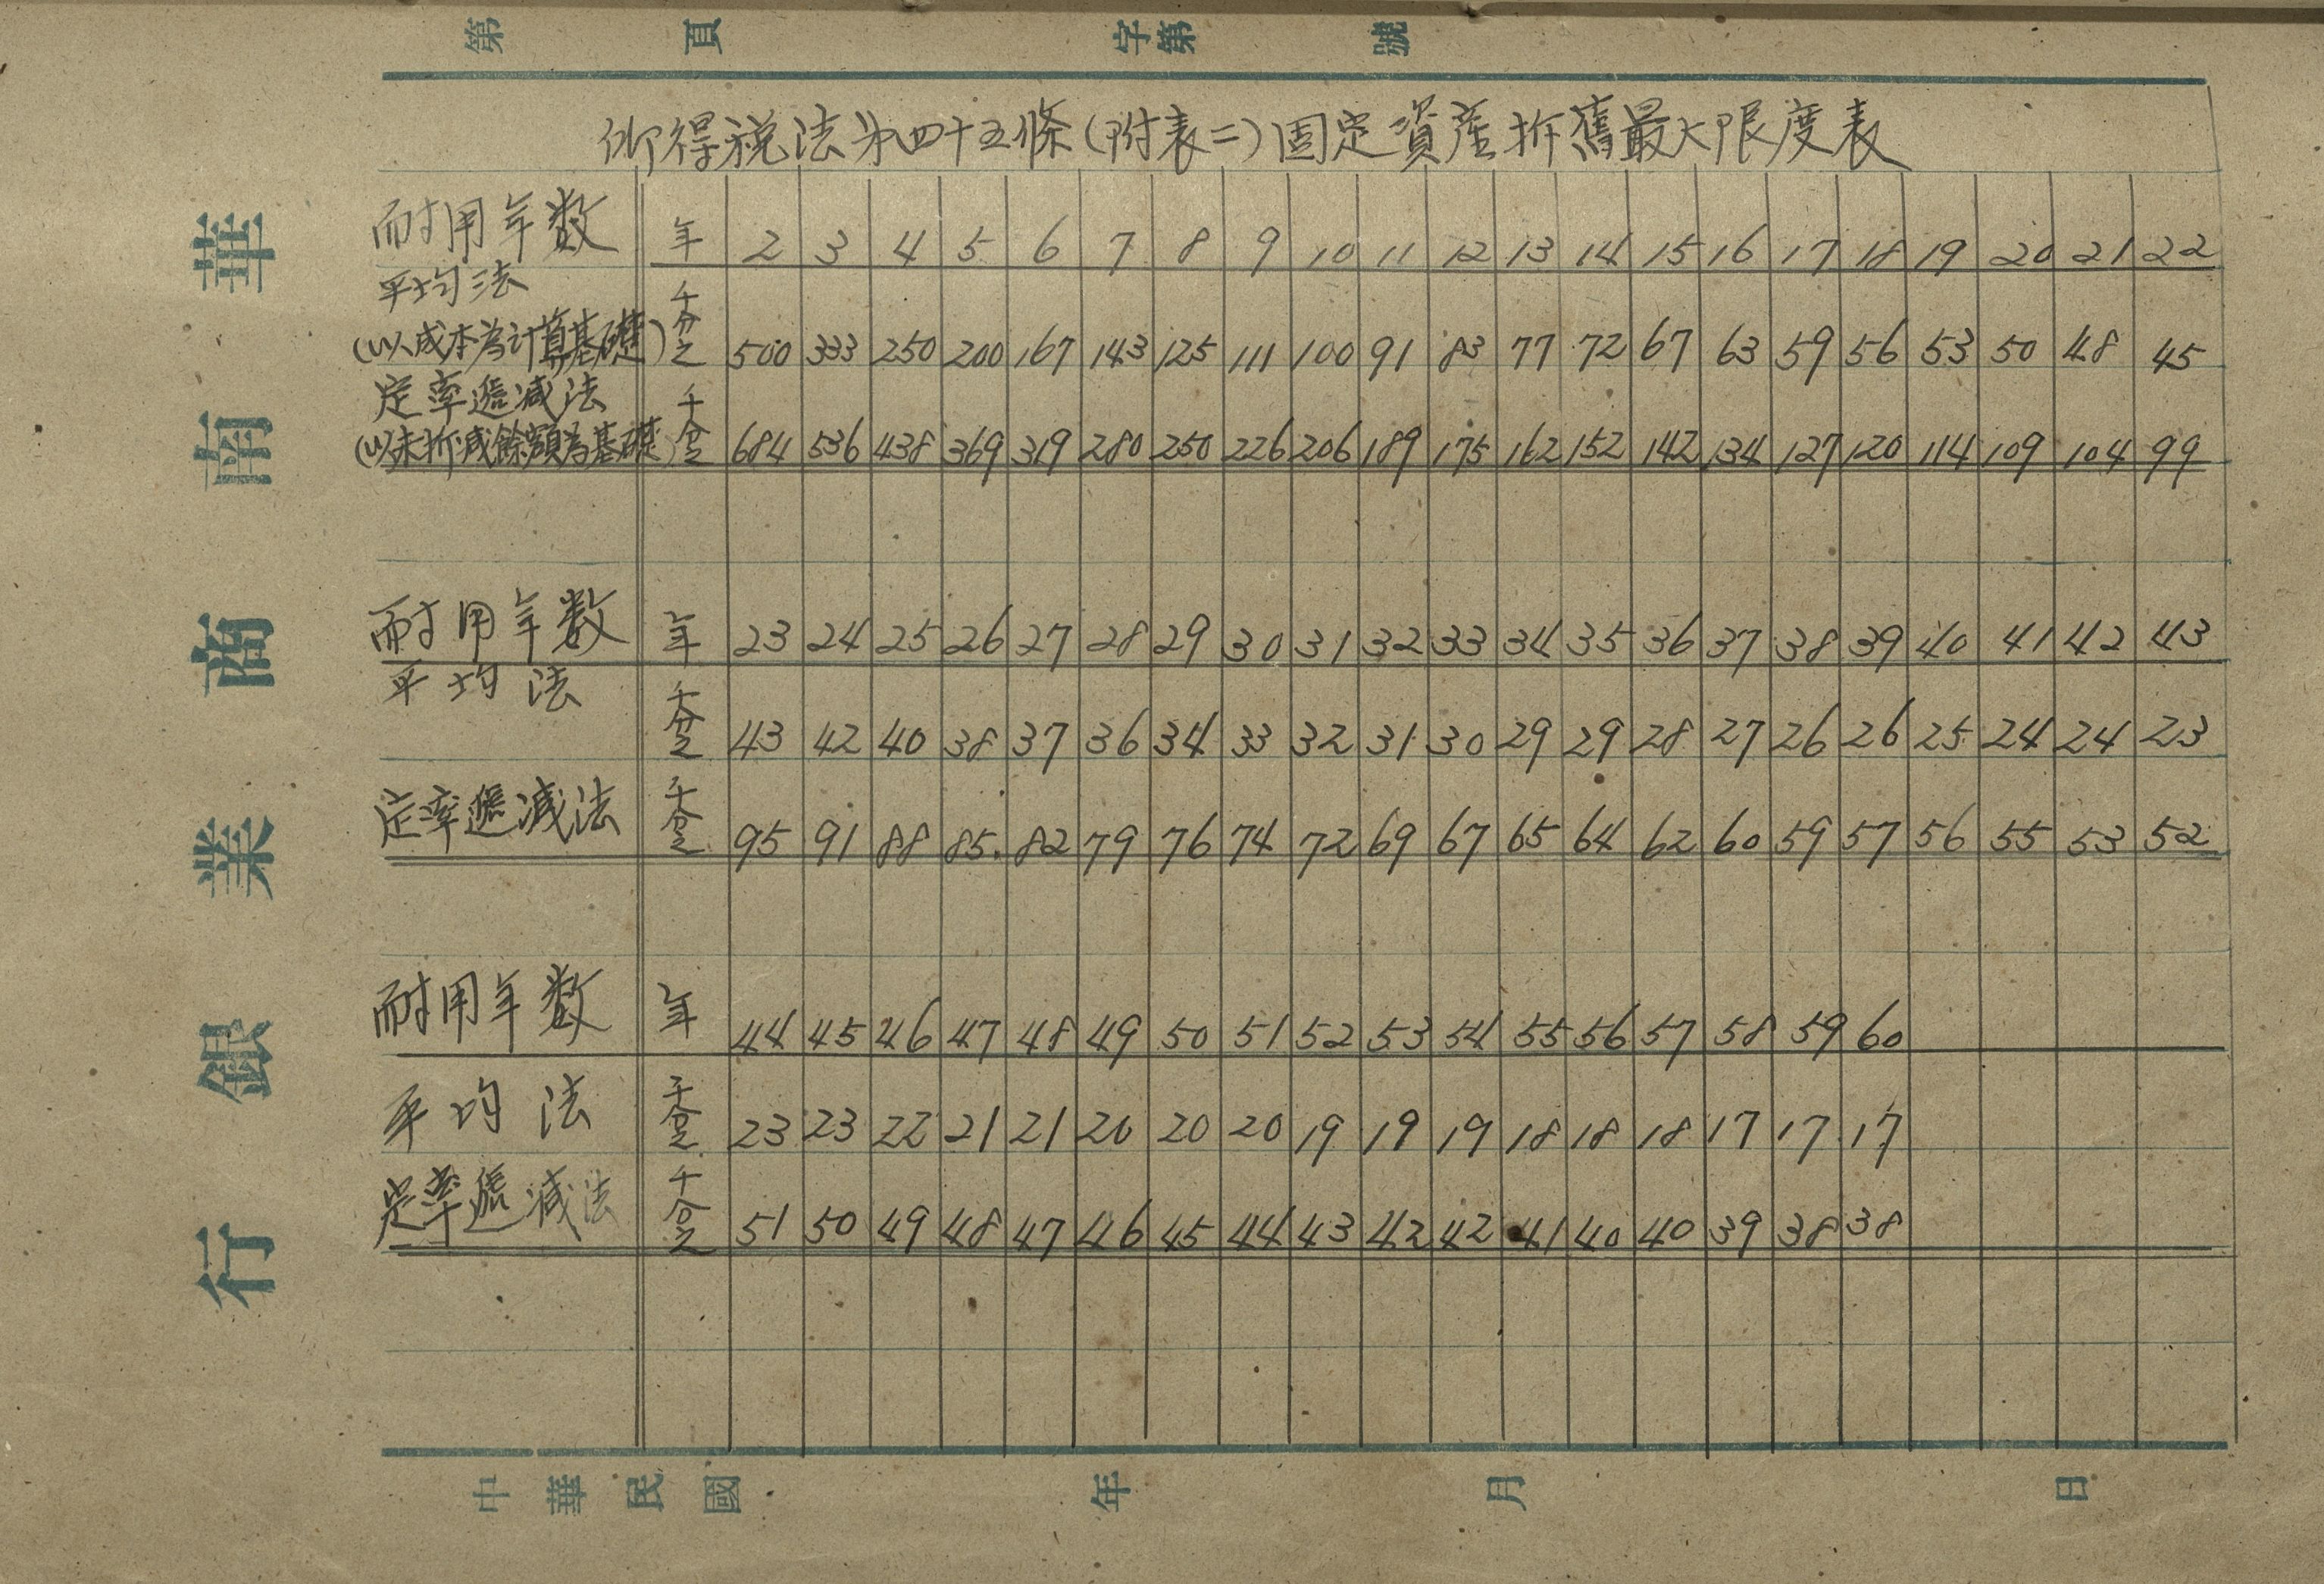 第 頁 字第 號
所得税法第四十五條(附表二)固定資産折舊最大限度表
耐用年数 年 2 3 4 5 6 7 8 9 10 11 12 13 14 15 16 17 18 19 20 21 22
平均法
(以成本為計算基礎) 千分之 500 333 250 200 167 143 125 111 100 91 83 77 72 67 63 59 56 53 50 48 45
定率遞減法
(以未折减餘額為基礎) 千分之 684 536 438 369 319 280 250 226 206 189 175 162 152 142 134 127 120 114 109 104 99
耐用年数 年 23 24 25 26 27 28 29 30 31 32 33 34 35 36 37 38 39 40 41 42 43
平均法 千分之 43 42 40 38 37 36 34 33 32 31 30 29 29 28 27 26 26 25 24 24 23
定率遞減法 千分之 95 91 88 85 82 79 76 74 72 69 67 65 64 62 60 59 57 56 55 53 52
耐用年数 年 44 45 46 47 48 49 50 51 52 53 54 55 56 57 58 59 60
平均法 千分之 23 23 22 21 21 20 20 20 19 19 19 18 18 18 17 17 17
定率遞減法 千分之 51 50 49 48 47 46 45 44 43 42 42 41 40 40 39 38 38
中華民國 年 月 日
華南商業銀行